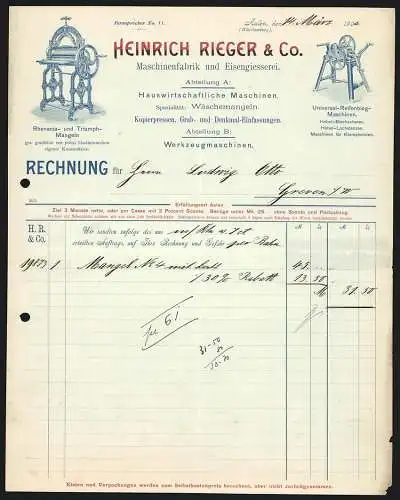 Fernsprecher No. 11.
Aalen, den 14. März
(Württemberg).
HEINRICH RIEGER & Co.
Maschinenfabrik und Eisengiesserei.
Abteilung A:
Hauswirtschaftliche Maschinen.
Spezialität: Wäschemangeln.
Kopierpressen, Grab- und Denkmal-Einfassungen.
Abteilung B:
Werkzeugmaschinen.
Rhenania- und Triumph-
Mangeln
Universal-Reifenbieg-
Maschinen.
Hebel-Blechscheren.
Hebel-Lochstanzen.
Maschinen für Klempnereien.
RECHNUNG für Herrn Ludwig Otto
Greven i/W
Erfüllungsort Aalen
Ziel 3 Monate netto, oder per Cassa mit 2 Procent Sconto. Beträge unter Mk. 25. ohne Sconto und Portoabzug.
H. R.
& Co.
Wir sandten zufolge des uns
erteilten Auftrags, auf Ihre Rechnung und Gefahr per Bahn
1 Mangel No 4 mit 45.
/ 30% Rabatt 13.50
M 31.50
61
31-50
Kisten und Verpackungen werden zum Selbstkostenpreis berechnet, aber nicht zurückgenommen.